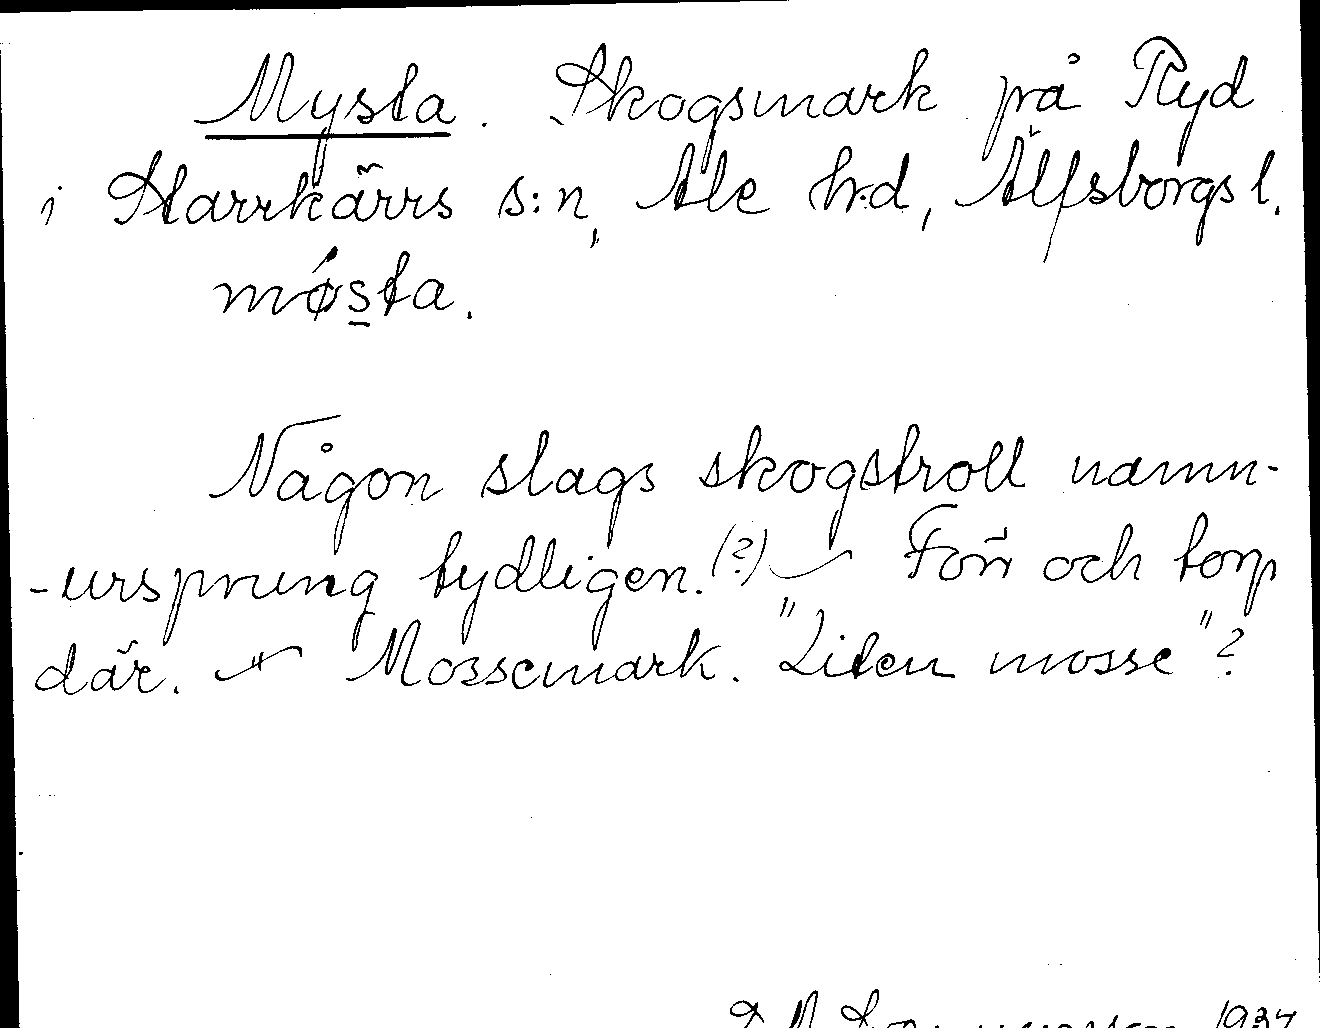 Mysta. Skogsmark på Ryd
i Starrkärrs s:n, Ale h:d, Älfsborgs l.
møsta.
Någon slags skogstroll namn-
-ursprung tydligen.(?) Förr och torp
där. Mossemark. "Liten mosse"?
1937